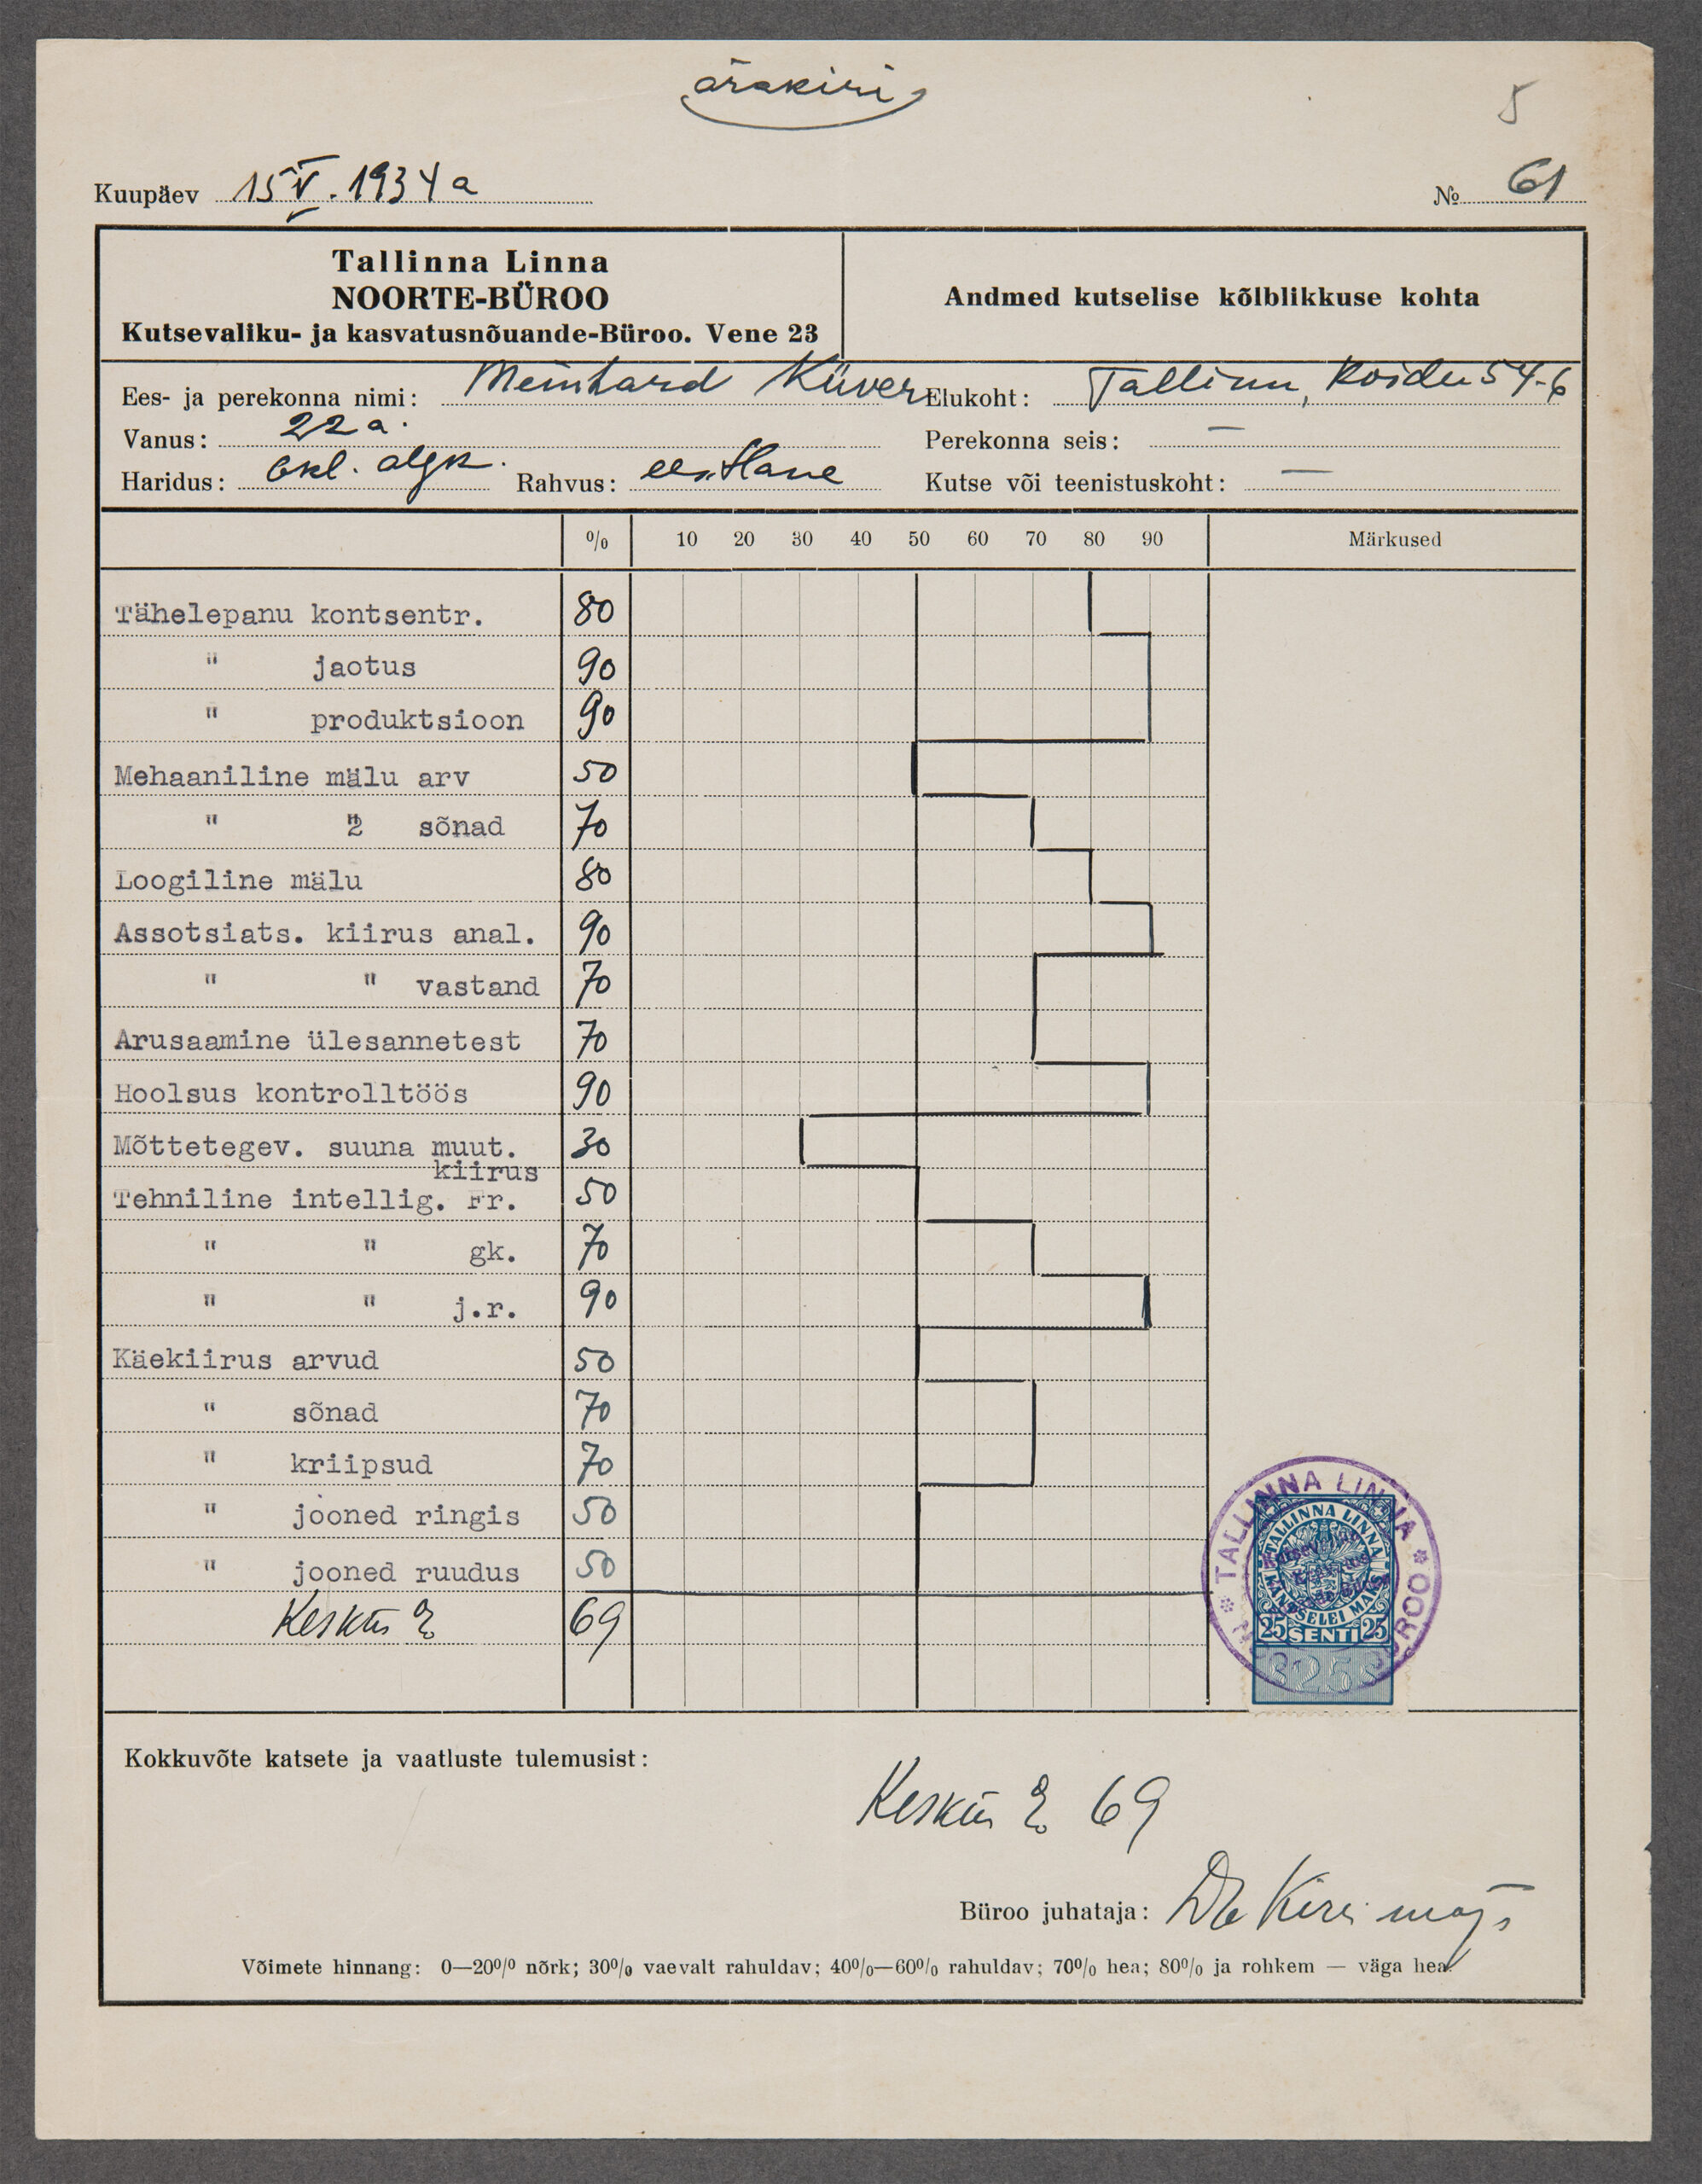 ärakiri
5
Kuupäev 15 V. 1934 a
№ 61
Tallinna Linna
NOORTE-BÜROO
Kutsevaliku- ja kasvatusnõuande-Büroo. Vene 23
Andmed kutselise kõlblikkuse kohta
Ees- ja perekonna nimi: Meinhard Küver Elukoht: Tallinn, Koidu 54-6
Vanus: 22 a. Perekonna seis: —
Haridus: 6kl. algk. Rahvus: eestlane Kutse või teenistuskoht: —
% 10 20 30 40 50 60 70 80 90 Märkused
Tähelepanu kontsentr. 80
" jaotus 90
" produktsioon 90
Mehaaniline mälu arv 50
" " sõnad 70
Loogiline mälu 80
Assotsiats. kiirus anal. 90
" " vastand 70
Arusaamine ülesannetest 70
Hoolsus kontrolltöös 90
Mõttetegev. suuna muut. 30
kiirus
Tehniline intellig. Fr. 50
" " gk. 70
" " j.r. 90
Käekiirus arvud 50
" sõnad 70
" kriipsud 70
" jooned ringis 50
" jooned ruudus 50
69
TALLINNA LINNA
TALLINNA LINNA
KANTSELEI MAKS
25 SENTI 25
Kokkuvõte katsete ja vaatluste tulemusist:
69
Büroo juhataja:
Võimete hinnang: 0—20% nõrk; 30% vaevalt rahuldav; 40%—60% rahuldav; 70% hea; 80% ja rohkem — väga hea.